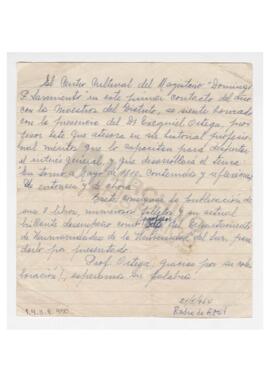 El Centro Cultural del Magisterio "Domingo
F. Sarmiento" en este primer contacto del año
con los Maestros del Distrito, se siente honrado
con la presencia del Dr Ezequiel Ortega, pro-
fesor este que atesora en su historial profesio-
nal méritos que lo capacitan para despertar
el interés general, y que desarrollará el tema:
En torno a Mayo de 1810. Contenidos y reflexiones
de entonces y de ahora
Baste consignar la publicación de
sus libros, numerosos folletos y su actual
brillante desempeño como del Departamento
de Humanidades de la Universidad del Sur, para
darlo por presentado.
Prof. Ortega, gracias por su cola-
boración!, esperamos su palabra.